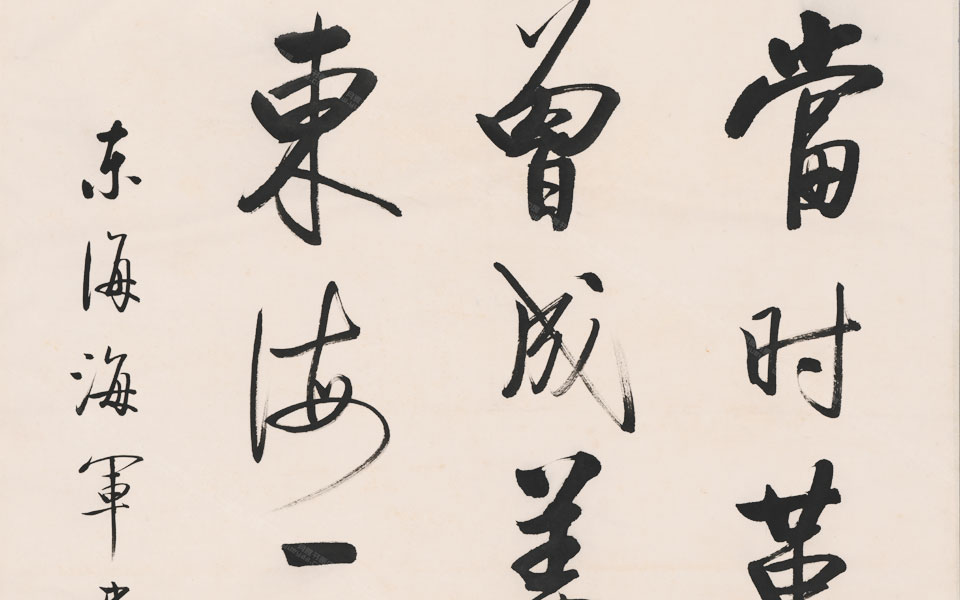 當时
曾成
東海一
东海海軍